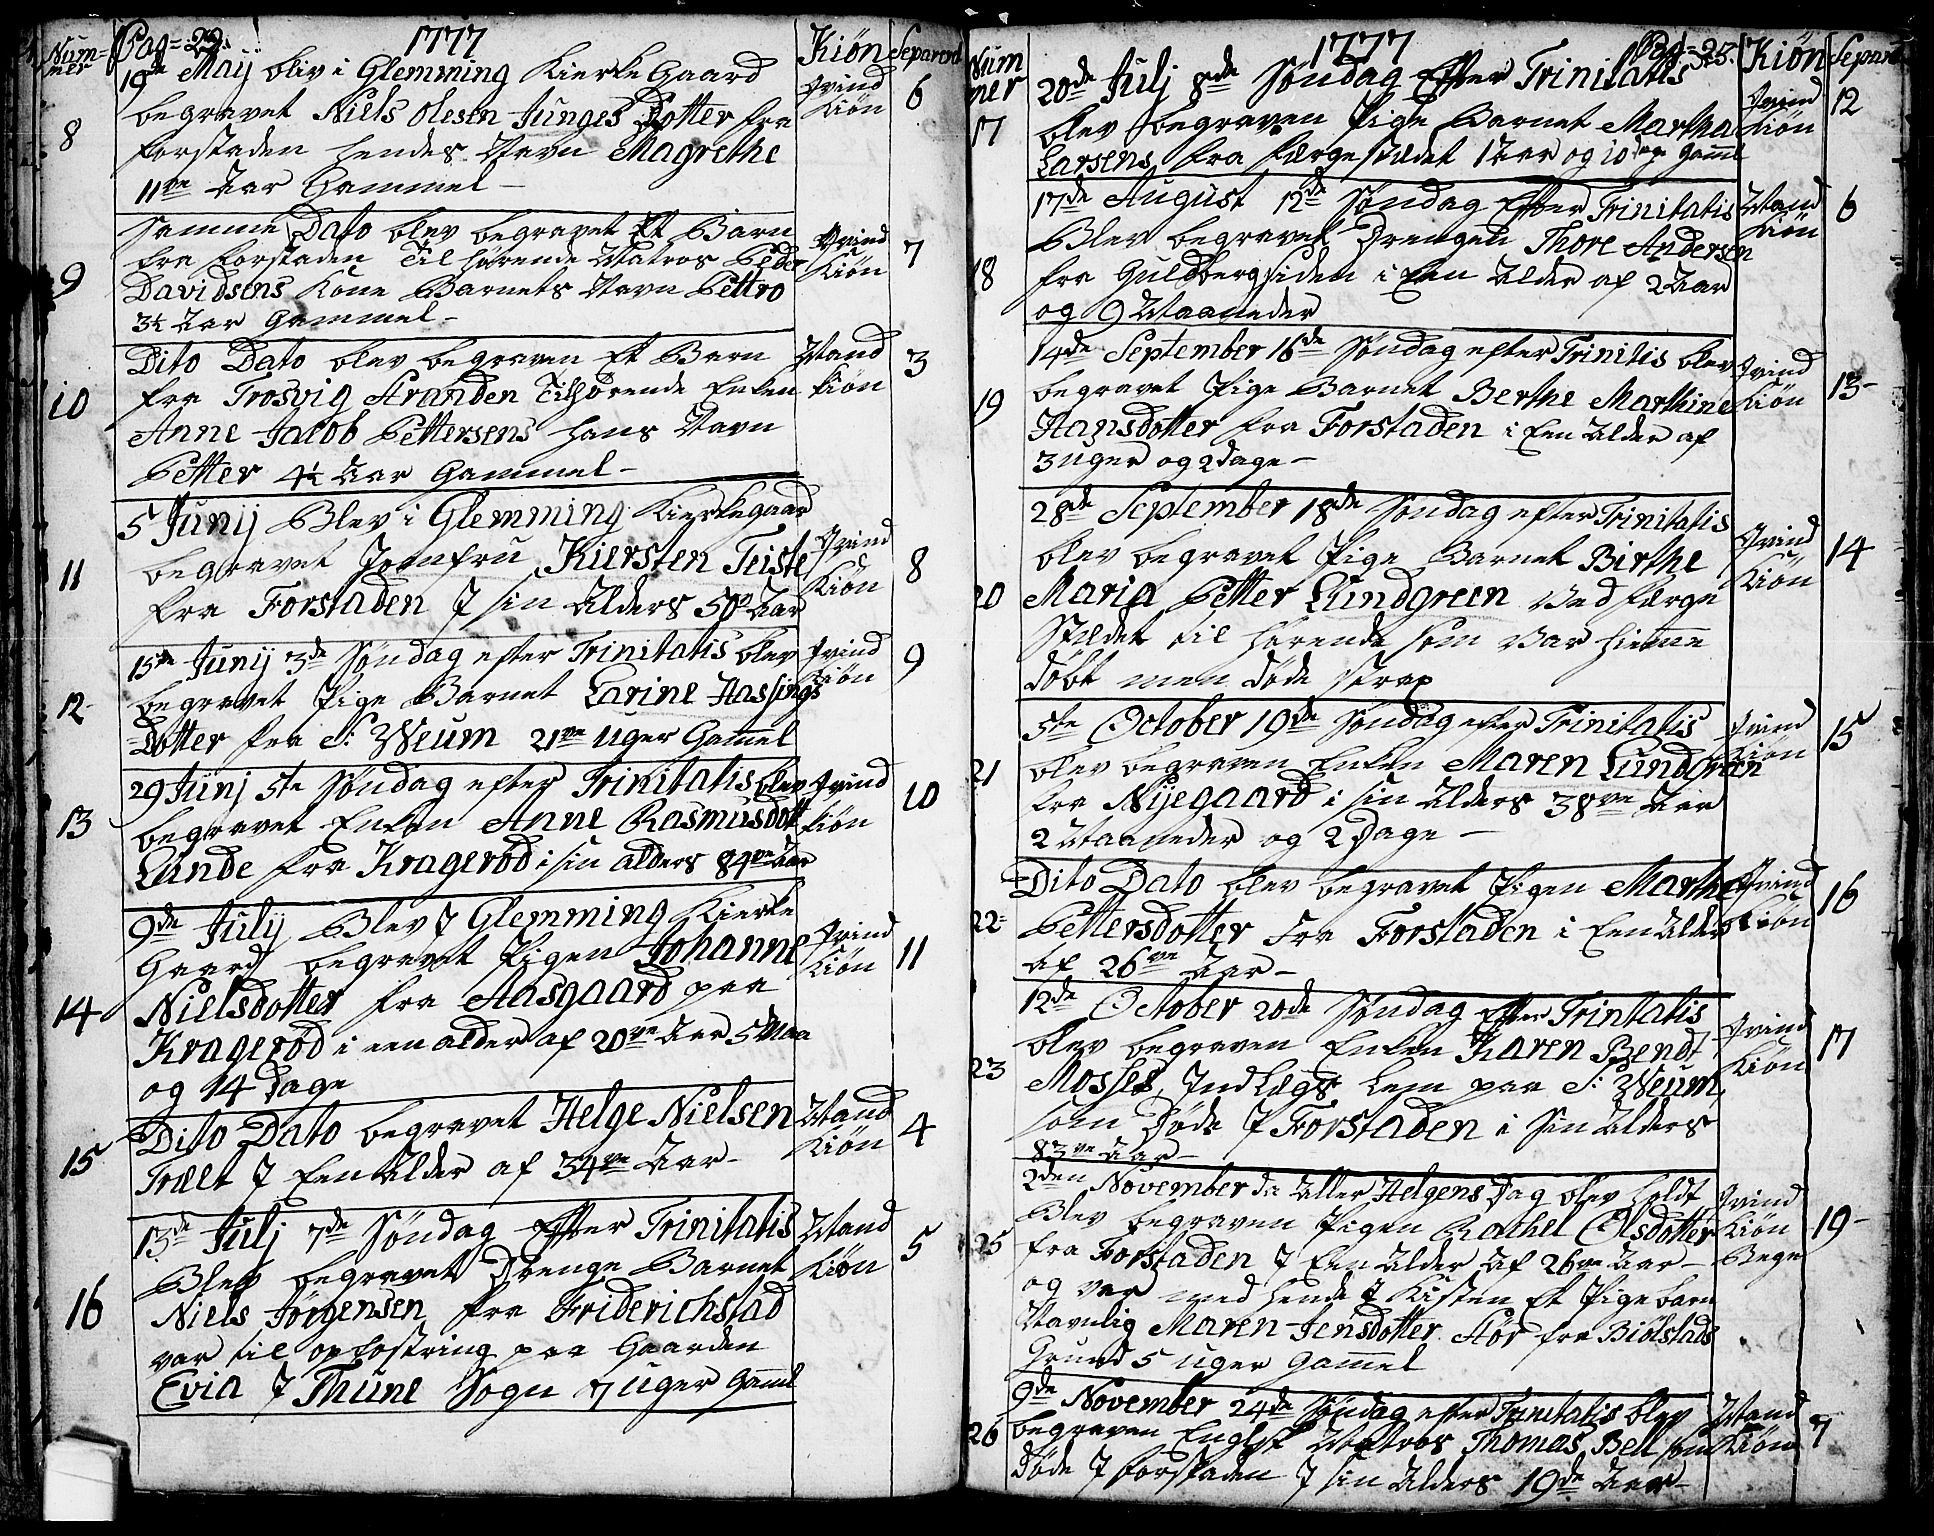 Num=
mer
Pag=22.
1777
Kiön
Separered
19de Maij bliv i Glemming Kierke Gaard
begravet Niels Olesen Junges Dotter fra
forstaden hendes Navn Magrethe
11ve Aar Gammel -
8
Qvind
Kiön
6
Samme Dato blev begravet Et Barn
fra forstaden Til hörende Matros Peder
Davidsens Kone Barnets Navn Pettro
3½ Aar Gammel -
9
Qvind
Kiön
7
Dito Dato blev begraven Et Barn
fra Trosvig Stranden Tilhörende Enken
Anne Jacob Pettersens hans Navn
Petter 4½ Aar Gammel -
10
Mand
Kiön
3
5 Junij Blev i Glemming Kierkegaard
begravet Jomfru Kiersten Teiste
fra Forstaden J sin Alders 50de Aar
11
Qvind
Kiön
8
15de Junij 3de Söndag efter Trinitatis blev
begravet Pige Barnet Larine Hassings
Dotter fra S: Weum 21ve Uger Gamel
12
Qvind
Kiön
9
29 Junj 5te Söndag efter Trinitatis blev
begravet Enken Anne Rasmusdott
Lunde fra Kragerød i sin alders 84ve Aar
13
Qvind
Kiön
10
9de Julij Blev J Glemming Kierke
Gaard begravet Pigen Johanne
Nielsdotter fra Aasgaard paa
Kragerød i een alder af 20ve Aar 5 Maa
og 14 Dage
14
Qvind
Kiön
11
Dito Dato begravet Helge Nielsen
Trælt J Een Alder af 34ve Aar -
15
Mand
Kiön
4
13de Julj 7de Söndag Effter Trinitatis
Blev begravet Drenge Barnet
Niels Jörgensen fra Friderichstad
var til opfostring paa Gaarden
Evia J Thune Sogn 7 Uger Gaml
16
Mand
Kiön
5
Num
mer
1777
Pag=23.
Kiön
Separe
20de Julj 8de Söndag Effter Trinitatis
blev begraven Pige Barnet Martha
Larsens fra færgestædet 1 Aar og 10 dage Gaml
17
Qvind
Kiön
12
17de August 12de Söndag Effter Trinitatis
Blev begravet Drengen Thore Andersen
fra Guldbergsiden i Een Alder af 2 Aar
og 9 Maaneder
18
Mand
Kiön
6
14de September 16de Söndag efter Trinitis blev
begravet Pige Barnet Berthe Marthine
Hansdotter fra Forstaden i Een Alder af
3 uger og 2 dage -
19
Qvind
Kiön
13-
28de September 18de Söndag efter Trinitatis
blev begravet Pige Barnet Birthe
Maria Petter Lundgreen Ved færge
Stædet til hörende som var hieme
döbt men döde strax
20
Qvind
Kiön
14
5te October 19de Söndag efter Trinitatis
blev begraven Enken Maren Lundgran
fra Nijegaard i sin Alders 38ve Aar
2 Maaneder og 2 Dage -
21
Qvind
Kiön
15
Dito Dato blev begravet Pigen Marthe
Pettersdotter fra Forstaden i Een Alder
af 26ve Aar -
22=
Qvind
Kiön
16
12de October 20de Söndag Effter Trintatis
blev begraven Enken Karen Bendt
Mosses, Indlægs Lem paa S: Weum
som Döde J Forstaden i Sin Alders
83ve Aar -
23
Qvind
Kiön
17
2den November da Aller Helgens Dag blev holdt
Blev begraven Pigen Rachel Olsdotter
fra Forstaden J Een Alder af 26ve Aar -
og var med hende J Kisten Et Pige barn
Navnlig Maren Jensdotter Hör fra Biölstads
Grund 5 uger Gamel
25
Qvind
Kiön
Bege
19-
9de November 24de Söndag efter Trinitatis blev
begraven Englsk Matros Thomas Bell som
döde J forstaden J sin Alders 19de Aar -
26
Mand
Kiön
7